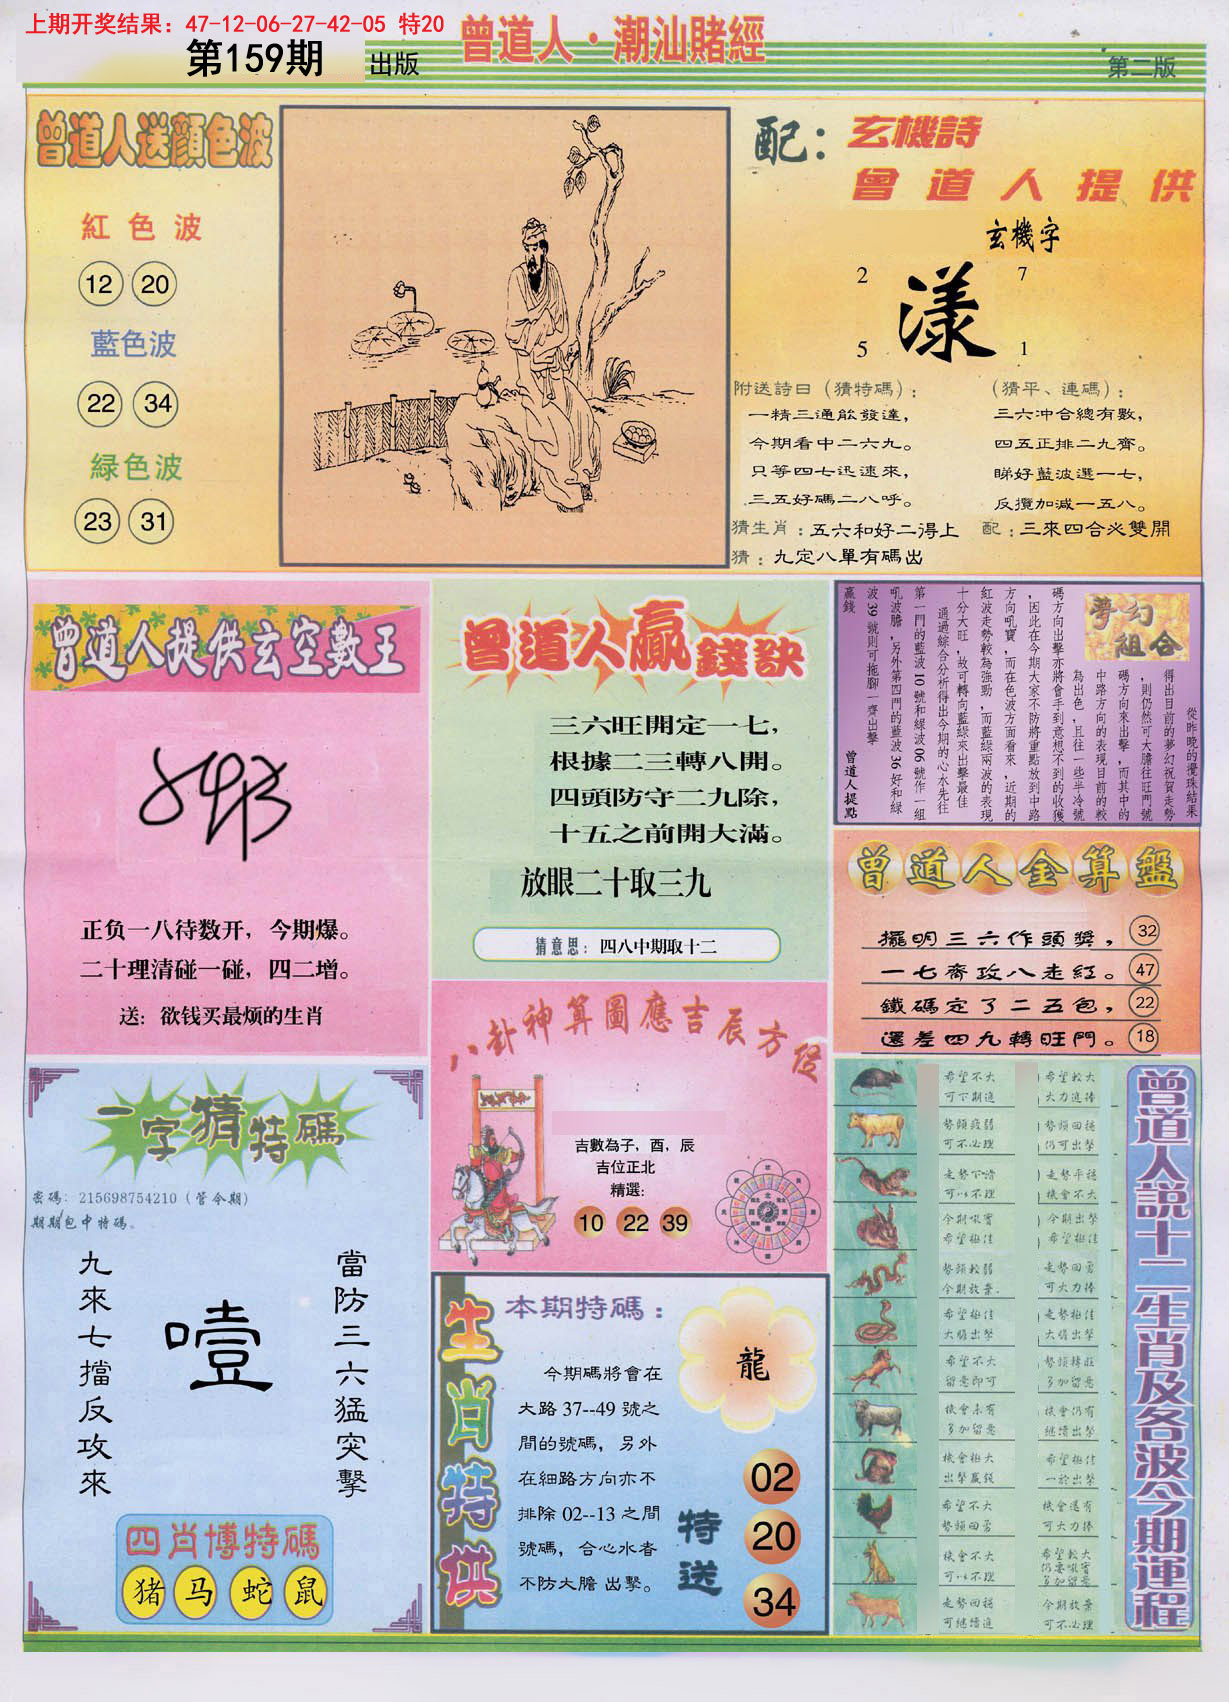 上期开奖结果：47-12-06-27-42-05 特20
第159期 出版
曾道人·潮汕賭經
第二版
曾道人送顏色波
紅色波
12 20
藍色波
22 34
緑色波
23 31
配：玄機詩
曾道人提供
玄機字
2 7
漾
5 1
附送詩曰（猜特碼）：
一精三通能發達，
今期看中二六九。
只等四七迅速來，
三五好碼二八呼。
（猜平、連碼）：
三六冲合總有數，
四五正排二九齊。
睇好藍波選一七，
反攬加減一五八。
猜生肖：五六和好二得上
配：三來四合必雙開
猜：九定八單有碼出
曾道人提供玄空數王
正负一八待数开，今期爆。
二十理清碰一碰，四二增。
送：欲钱买最烦的生肖
曾道人贏錢訣
三六旺開定一七，
根據二三轉八開。
四頭防守二九除，
十五之前開大滿。
放眼二十取三九
猜意思：四八中期取十二
夢幻組合
從昨晚的攪珠結果
得出目前的夢幻祝賀走勢
，則仍然可大膽往旺門號
碼方向來出擊，而其中的
中路方向的表現目前的較
為出色，且往一些半冷號
碼方向出擊亦將會手到意想不到的收獲
，因此在今期大家不防將重點放到中路
方向吼寶，而在色波方面看來，近期的
紅波走勢較為強勁，而藍綠兩波的表現
十分大旺，故可轉向藍綠來出擊最佳
通過綜合分析得出今期的心水先往
第一門的藍波10號和綠波06號作一組
吼波膽，另外第四門的藍波36好和綠
波39號則可拖腳一齊出擊
贏錢
曾道人提點
曾道人金算盤
擺明三六作頭獎， 32
一七齋攻八走紅。 47
鐵碼定了二五包， 22
還差四九轉旺門。 18
八卦神算圖應吉辰方位
吉數為子，酉，辰
吉位正北
精選：
10 22 39
一字猜特碼
密碼：215698754210（管令期）
期期包中特碼。
九來七擋反攻來
噎
當防三六猛突擊
四肖博特碼
猪 马 蛇 鼠
生肖特供
本期特碼：
龍
今期碼將會在
大路37--49號之
間的號碼，另外
在細路方向亦不
排除02--13之間
號碼，合心水者
不防大膽出擊。
特送
02
20
34
曾道人説十二生肖及各波今期運程
希望不大
可下期進
希望較大
大力進捧
勢頭疲弱
可不必理
勢頭回穩
仍可出擊
走勢下滑
可以不理
走勢平穩
機會不大
今期吼寶
希望極佳
今期出擊
希望極佳
勢頭較弱
今期放棄.
走勢回勇
可大力捧
希望極佳
大膽出擊
走勢極佳
大膽出擊
希望不大
留意即可
勢頭轉旺
多加留意
機會未有
多加留意
機會仍有
繼續出擊
機會極大
出擊贏錢
希望極佳
一於出擊
希望不大
勢頭回勇
機會還有
可大力捧
機會不大
可以不理
希望較大
仍要吼寶
多加留意
走勢回穩
可繼續進
今期放棄
可不必理